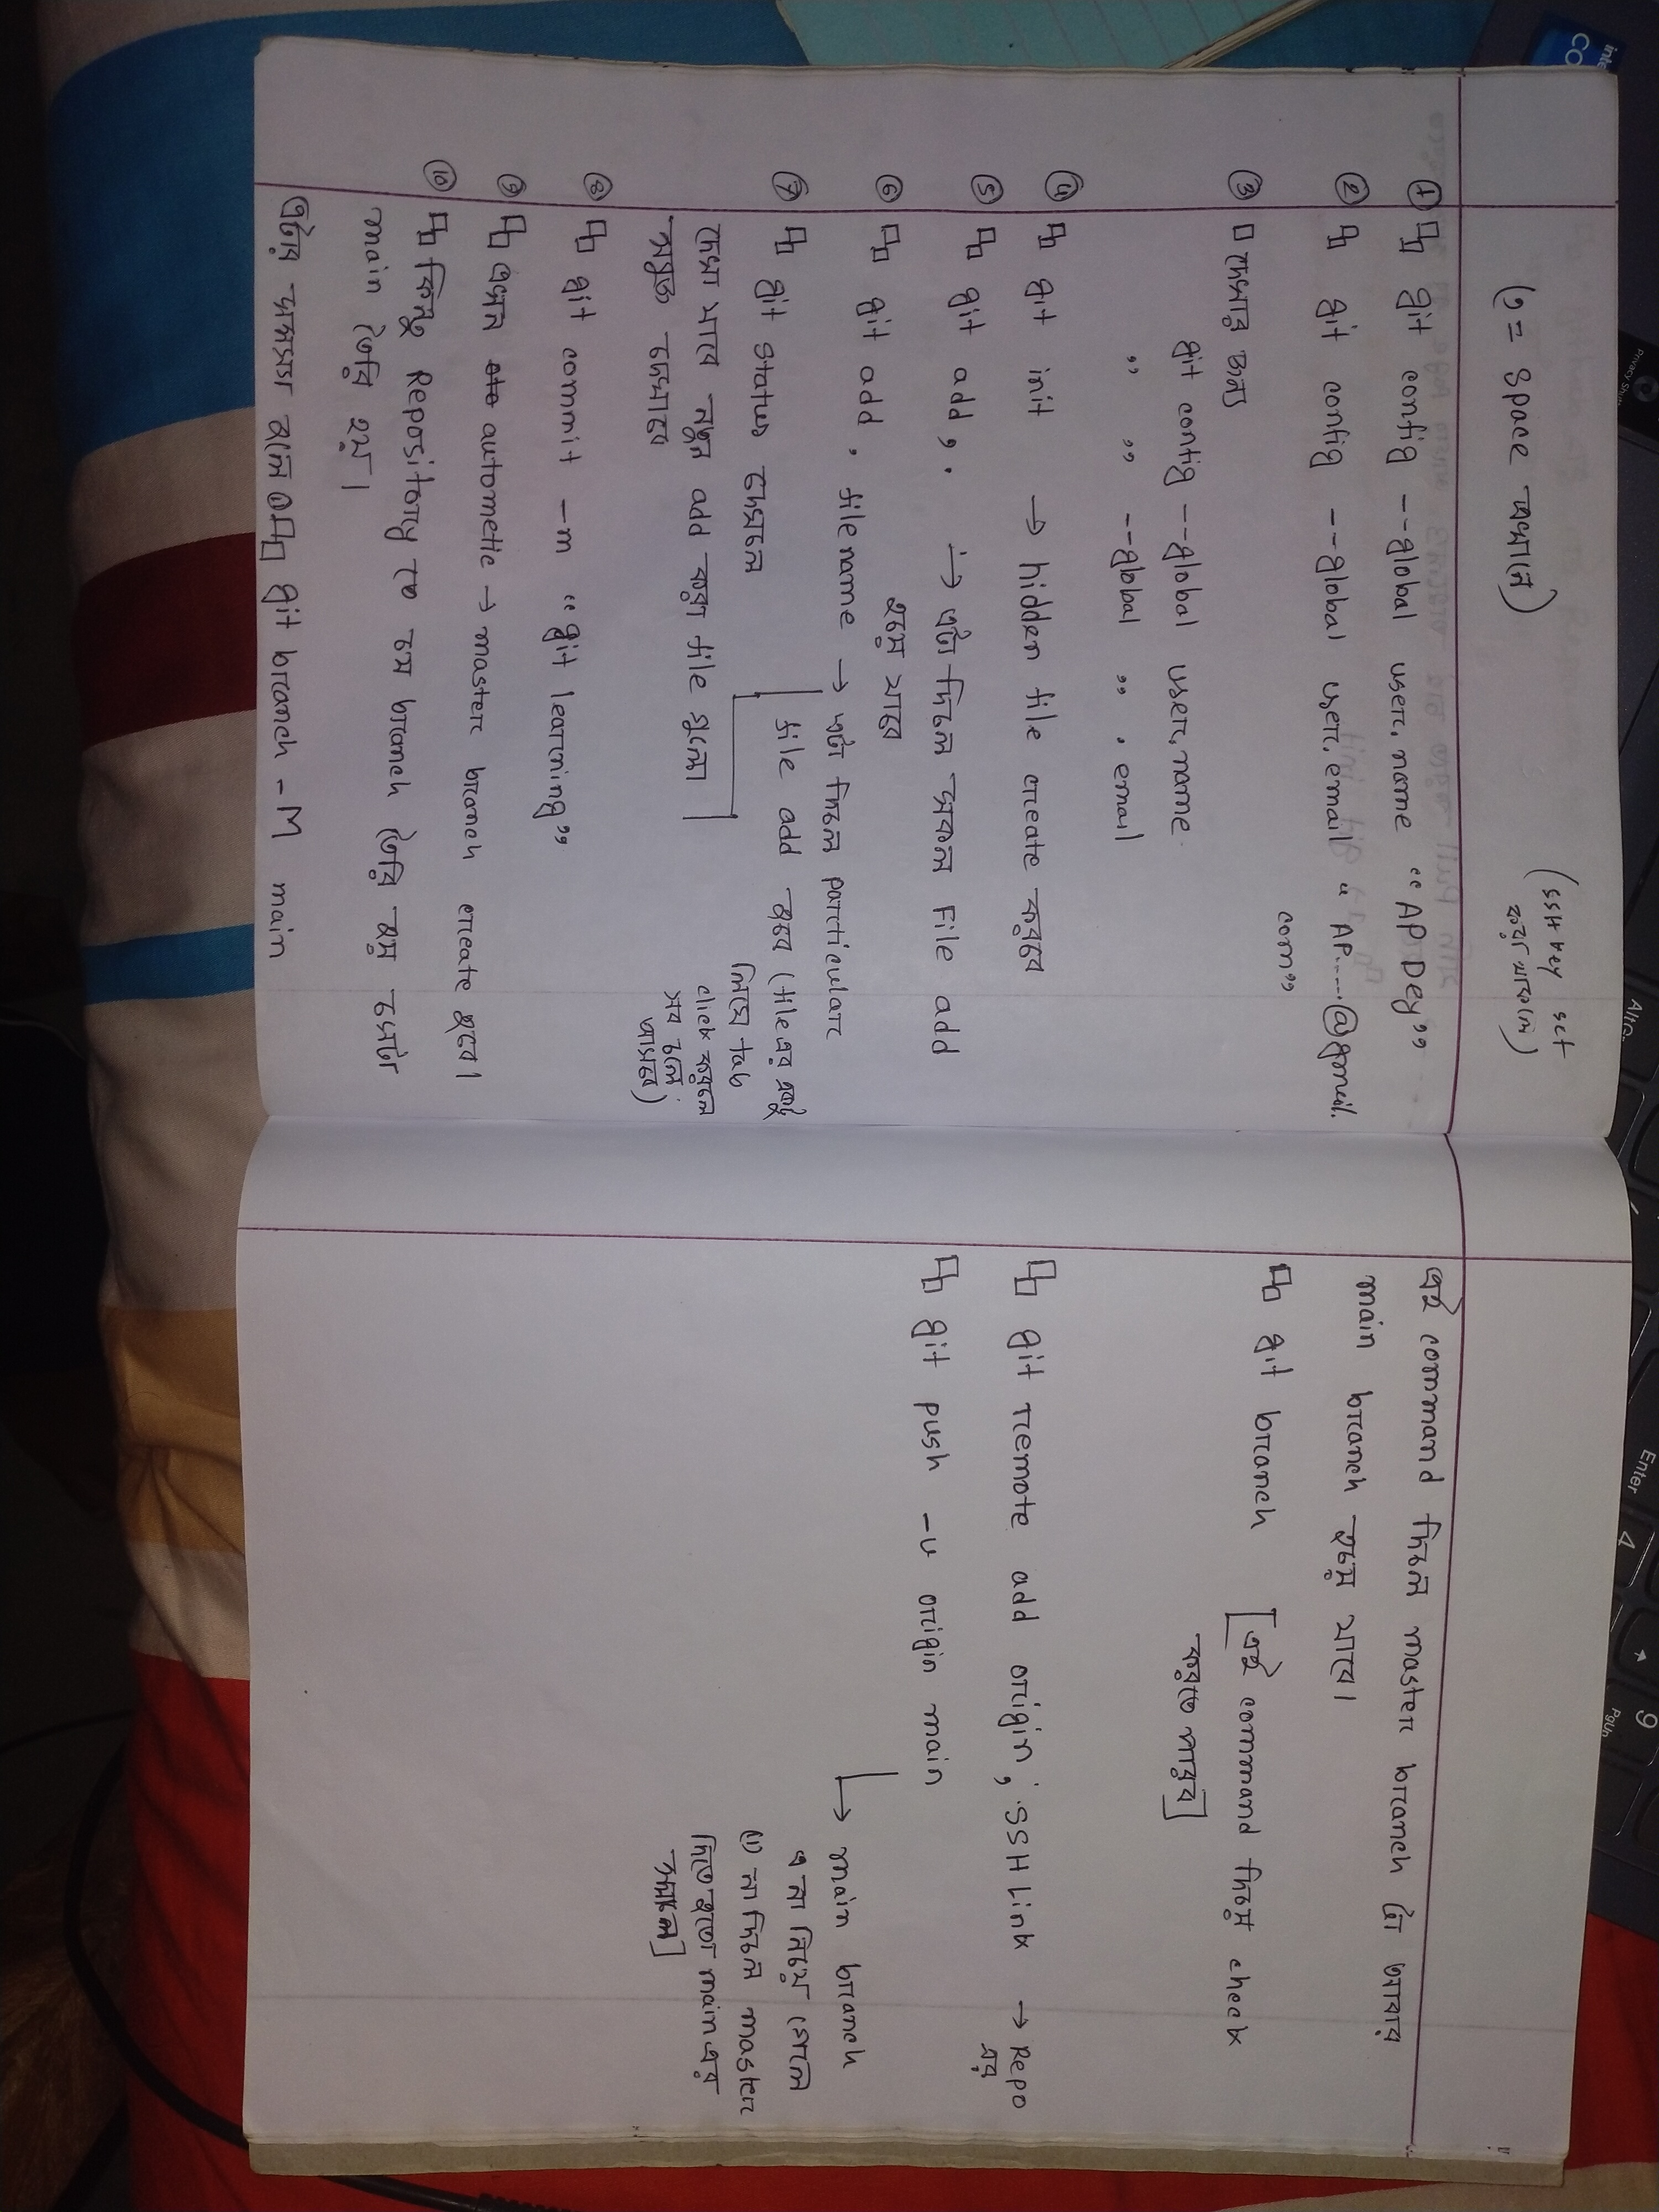 (, = space এখানে)
(SSH key set
করা থাকলে)
① git config --global user.name “AP Dey”
② git config --global user.email “AP.....@gmail.
com”
③ দেখার জন্য
git config --global user.name
” ” --global ” . email
④ git init → hidden file create করবে
⑤ git add , . → এটা দিলে সকল File add
হয়ে যাবে
⑥ git add , filename → এটা দিলে particular
file add হবে (file এর একটু
লিখে tab
click করলে
সব চলে
আসবে)
⑦ git status দেখলে
দেখা যাবে নতুন add করা file গুলো
সবুজ দেখাবে
⑧ git commit -m “git learning”
⑨ এখন autometic → master branch create হবে।
⑩ কিন্তু Repository তে যে branch তৈরি হয় সেটা
main তৈরি হয়।
এটার হলে git branch -M main
এই command দিলে master branch টা আবার
main branch হয়ে যাবে।
git branch [এই command দিয়ে check
করতে পারব]
git remote add origin, SSH Link → Repo
এর
git push -u origin main
↳ main branch
এ না নিয়ে গেলে
না দিলে master
দিতে হতো main এর
]
Enter
4
9
PgUp
AltG
Privacy Shut
inte
CO